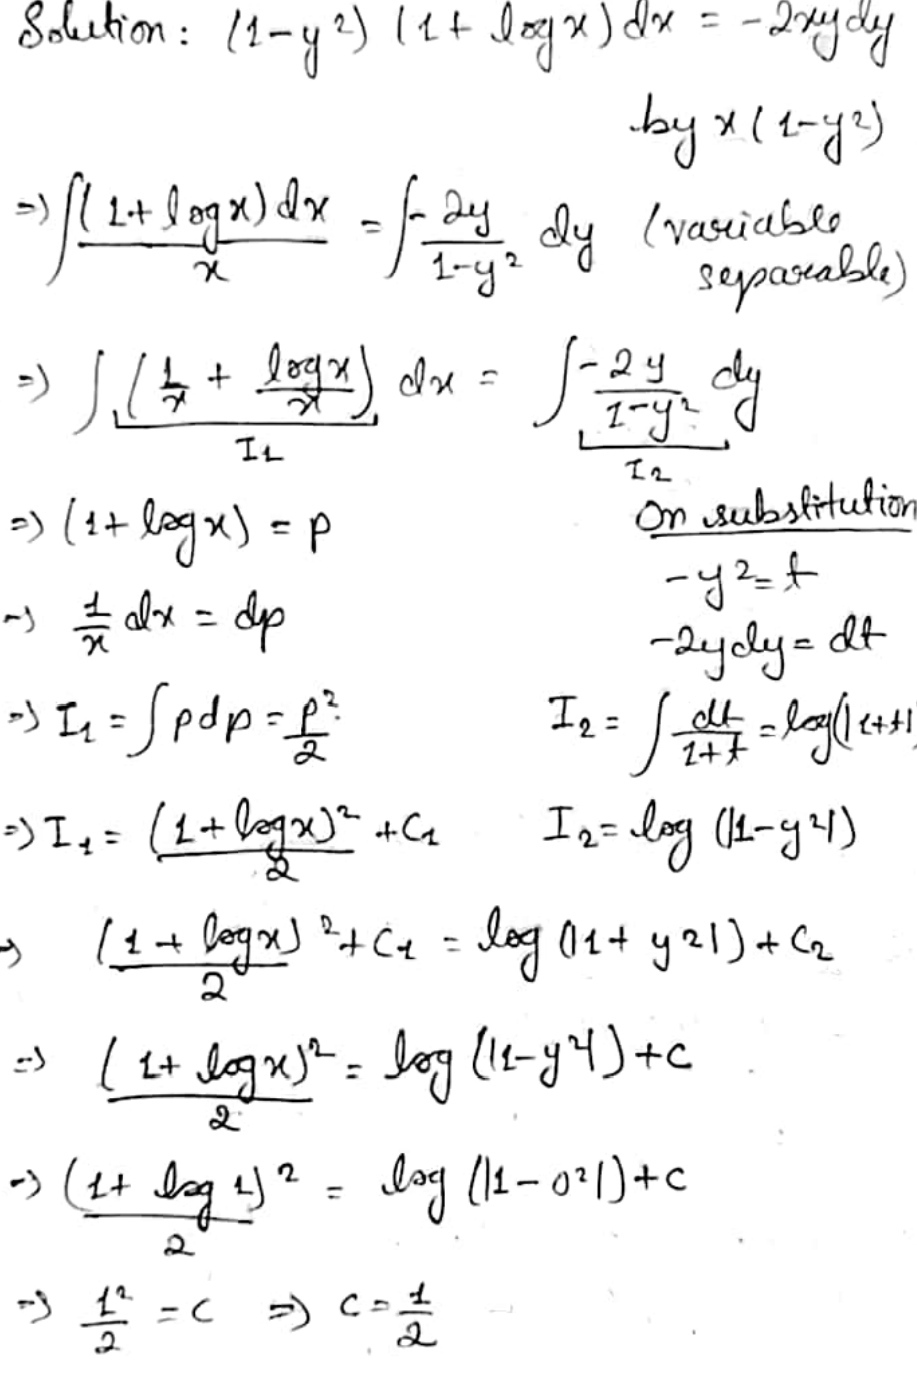 Solution: (1-y²) (1+ logx) dx = -2xy dy
by x(1-y²)
=) ∫(1+logx) dx/x = ∫-2y/1-y² dy (variable
separable)
=) ∫(1/x + logx/x) dx = ∫-2y/1-y² dy
I1 I2
=) (1+ logx) = p
On substitution
-y²=t
=) 1/x dx = dp
-2ydy= dt
=) I1 = ∫pdp = p²/2 I2 = ∫dt/1+t = log(|1+t|
=) I1 = (1+logx)²/2 +C1 I2 = log (|1-y²|)
=) (1+ logx)²/2 +C1 = log (|1+ y²|) + C2
=) (1+ logx)²/2 = log (|1-y²|) +c
=) (1+ log 1)²/2 = log (|1-0²|)+c
=) 1²/2 = c =) c = 1/2